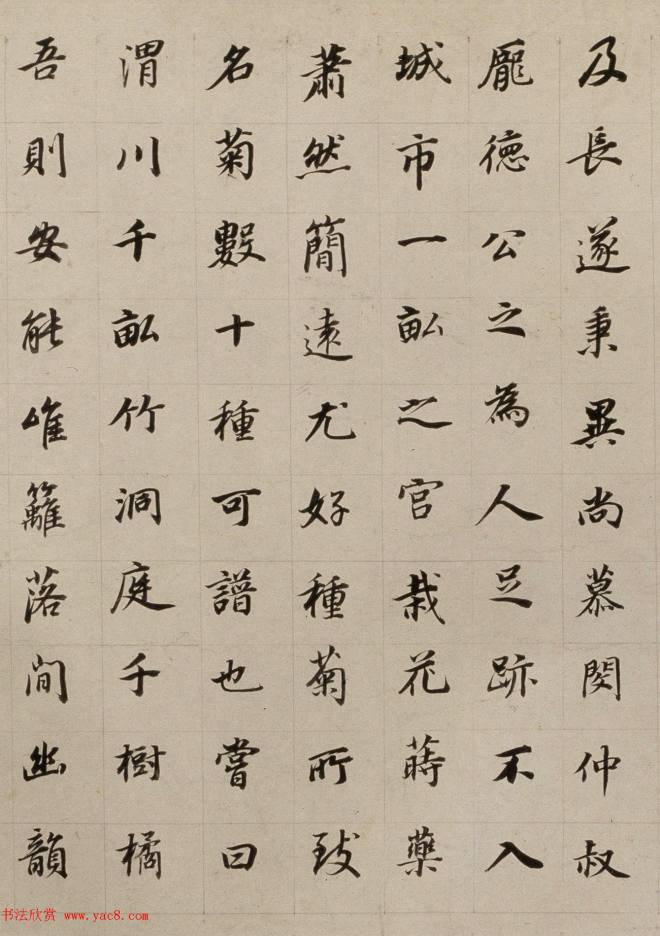 及長遂秉異尚慕閔仲叔
龐德公之為人足跡不入
城市一畝之宮栽花蒔藥
蕭然簡遠尤好種菊所致
名菊數十種可譜也嘗曰
渭川千畝竹洞庭千樹橘
吾則安能唯籬落間幽韻
书法欣赏 www.yac8.com